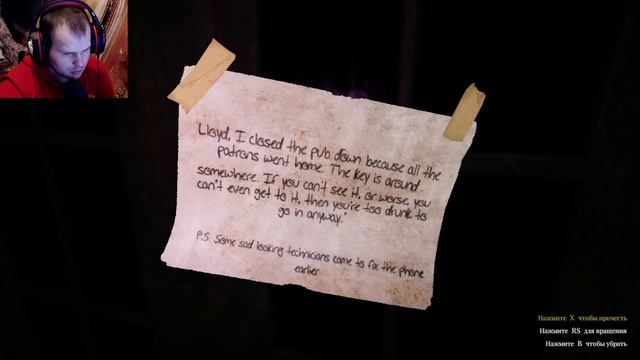 Lloyd, I closed the pub down because all the
patrons went home. The key is around
somewhere. If you can't see it, or worse, you
can't even get to it, then you're too drunk to
go in anyway."
P.S. Some sad looking technicians came to fix the phone
earlier
Нажмите X чтобы прочесть
Нажмите RS для вращения
Нажмите B чтобы убрать